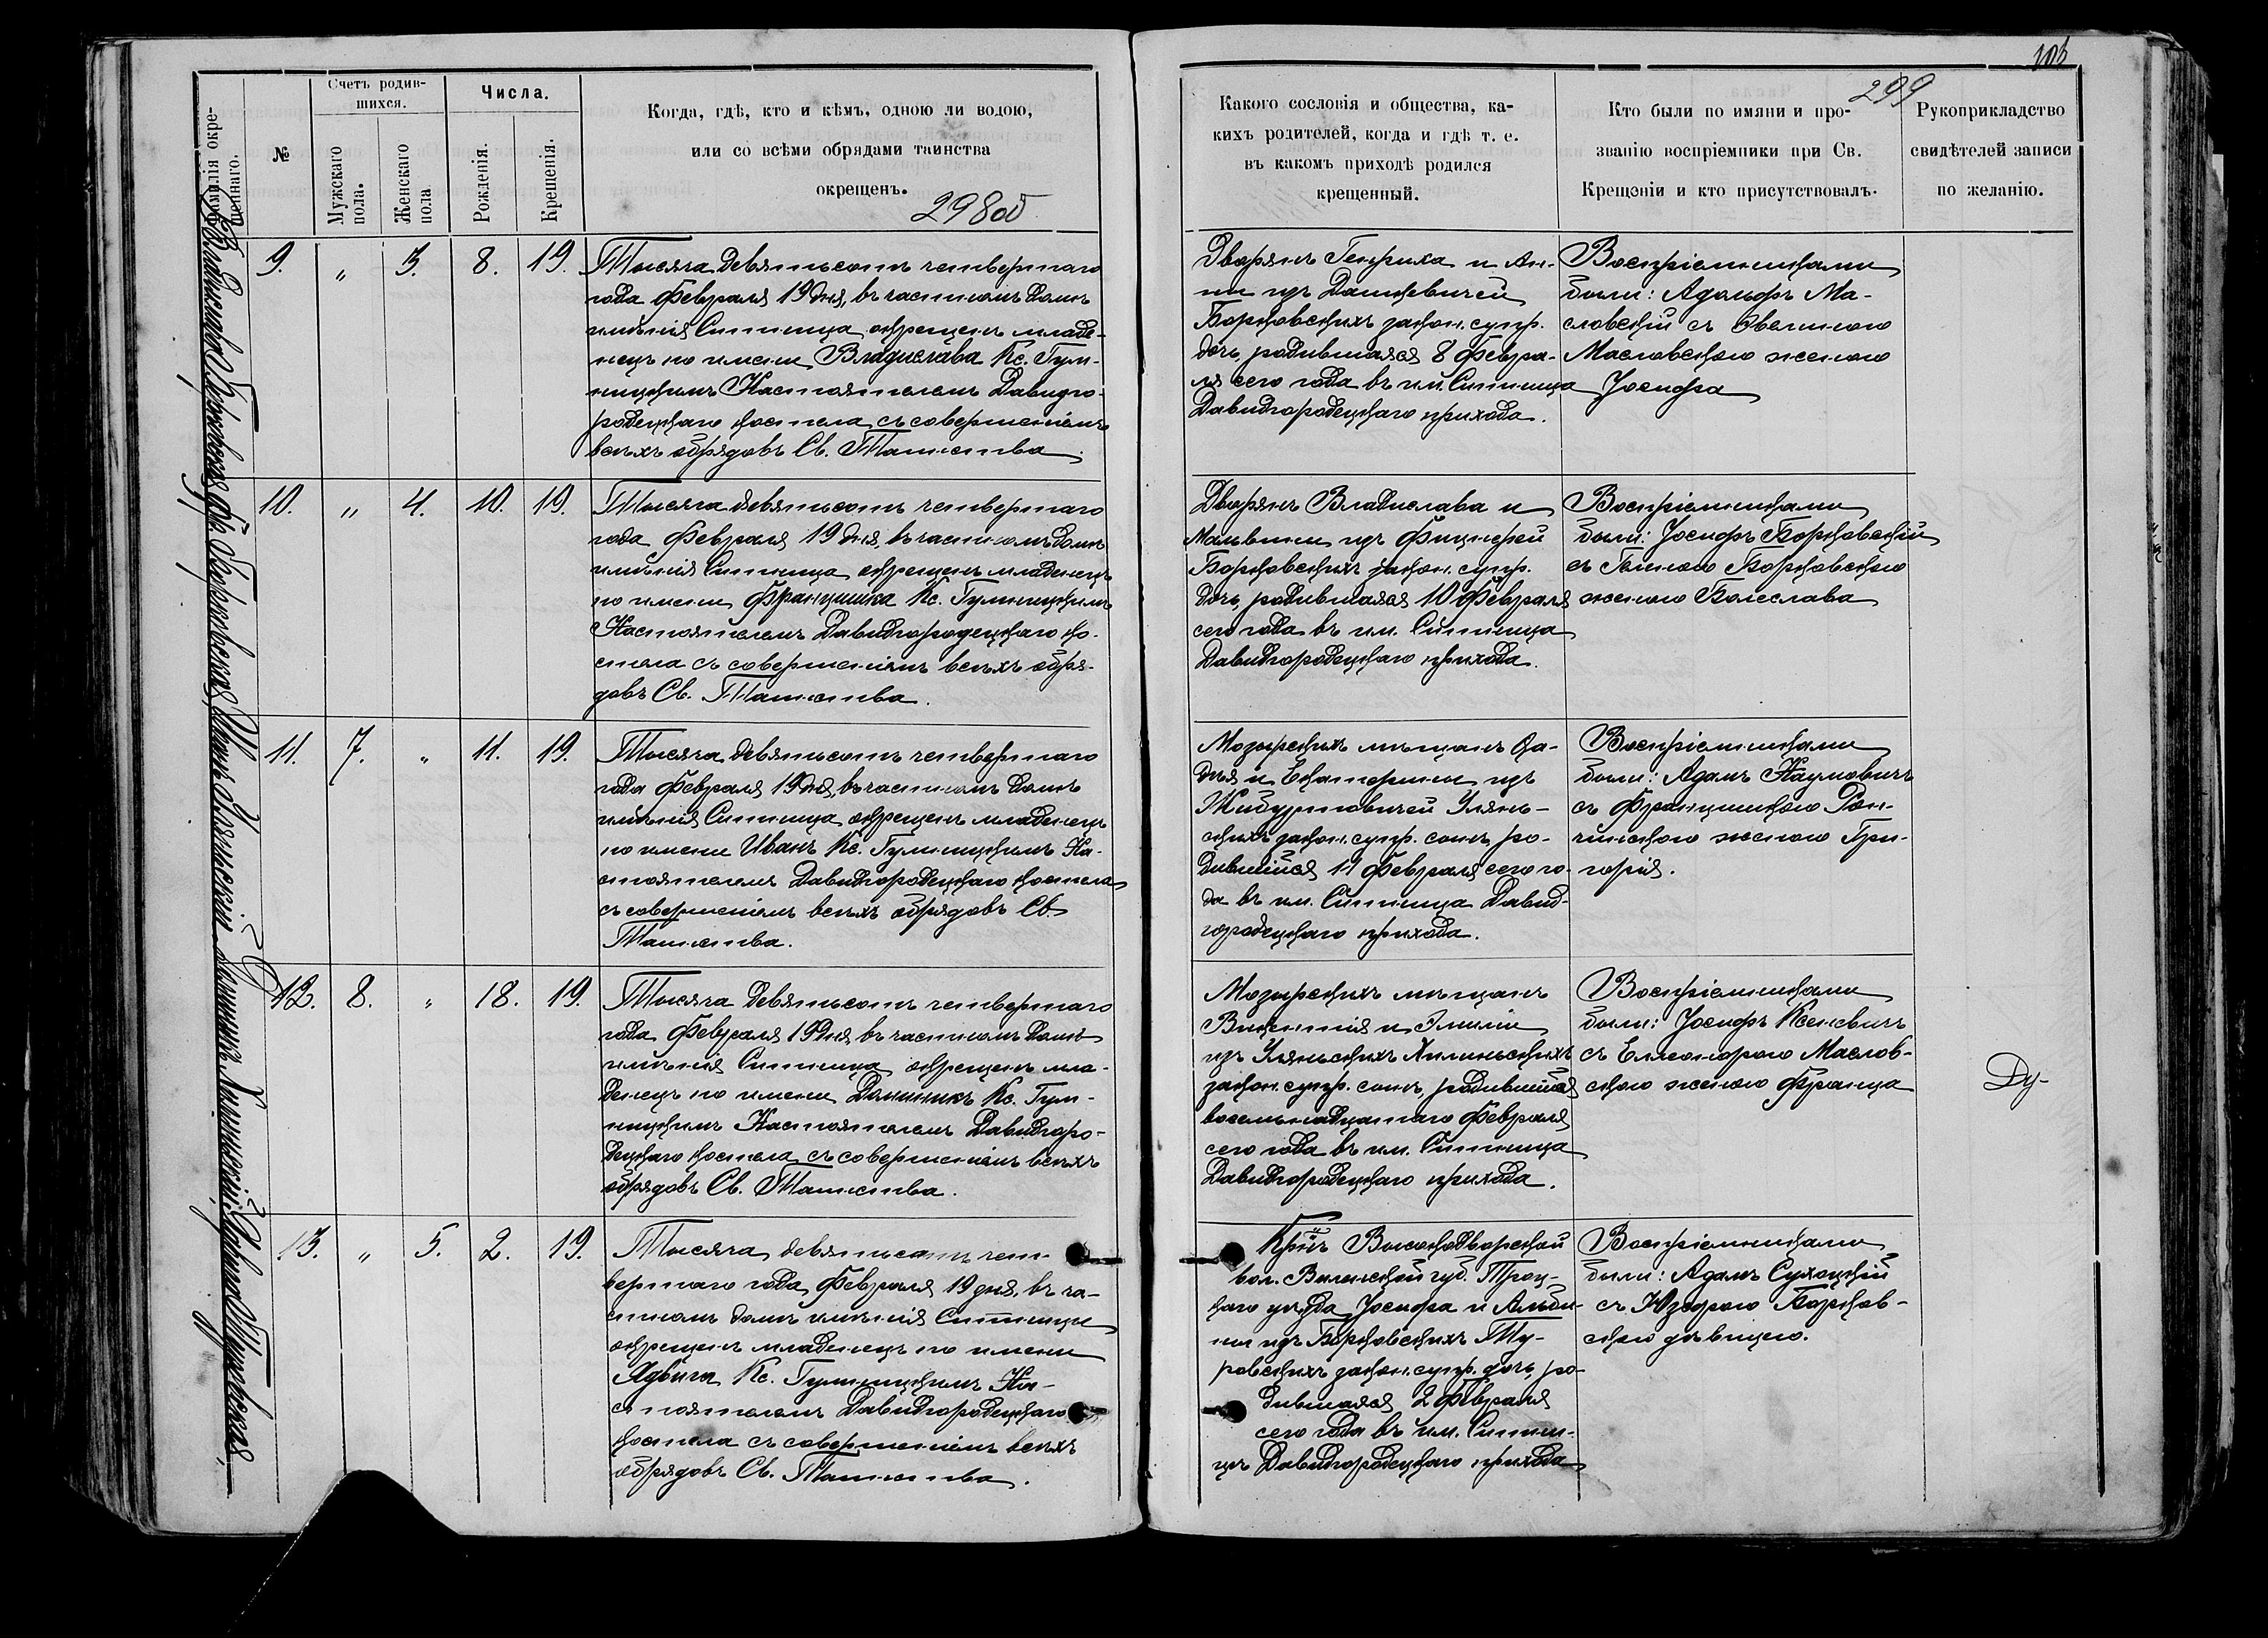 Фамилія окре-
щеннаго.
№
Счетъ родив-
шихся.
Мужскаго
пола.
Женскаго
пола
Числа.
Рожденія.
Крещенія.
Когда, гдѣ, кто и кѣмъ, одною ли водою,
или со всѣми обрядами таинства
окрещенъ.
298об
Владислава Борковская
Борковская
Иванъ Улянскій
Доминикъ Хилинскій
Ядвига Туровская
9. " 3. 8. 19.
Тысяча девятьсотъ четвертаго
года Февраля 19 дня, въ частномъ домѣ
имѣнія Ситница окрещенъ младе-
нецъ по имени Владислава Кс.
Настоятелемъ Давидго-
родецкаго костела съ совершеніемъ
всѣхъ обрядовъ Св. Таинства.
10. " 4. 10. 19.
Тысяча девятьсотъ четвертаго
года Февраля 19 дня, въ частномъ домѣ
имѣнія Ситница окрещенъ младенецъ
по имени Францишка Кс.
Настоятелемъ Давидгородецкаго ко-
стела съ совершеніемъ всѣхъ обря-
довъ Св. Таинства.
11. 7. " 11. 19.
Тысяча девятьсотъ четвертаго
года Февраля 19 дня, въ частномъ домѣ
имѣнія Ситница окрещенъ младенецъ
по имени Иванъ Кс. На-
стоятелемъ Давидгородецкаго костела
съ совершеніемъ всѣхъ обрядовъ Св.
Таинства.
12. 8. " 18. 19.
Тысяча девятьсотъ четвертаго
года Февраля 19 дня въ частномъ домѣ
имѣнія Ситница окрещенъ мла-
денецъ по имени Доминикъ Кс.
Настоятелемъ Давидгоро-
децкаго костела съ совершеніемъ всѣхъ
обрядовъ Св. Таинства.
13. " 5. 2. 19.
Тысяча девятьсотъ чет-
вертаго года Февраля 19 дня, въ ча-
стномъ домѣ имѣнія Ситницы
окрещенъ младенецъ по имени
Ядвига Кс. На-
стоятелемъ Давидгородецкаго
костела съ совершеніемъ всѣхъ
обрядовъ Св. Таинства.
299
Какого сословія и общества, ка-
кихъ родителей, когда и гдѣ т. е.
въ какомъ приходѣ родился
крещенный.
Кто были по имяни и про-
званію воспріемники при Св.
Крещеніи и кто присутствовалъ.
Рукоприкладство
свидѣтелей записи
по желанію.
Дворянъ Генриха и Ан-
ны изъ Дашкевичей
Борковскихъ закон. супр.
дочь, родившаяся 8 Февра-
ля сего года въ им. Ситница
Давидгородецкаго прихода.
Воспріемниками
были: Адольфъ Ма-
словскій съ Эвелиною
Масловскою женою
Іосифа
Дворянъ Владислава и
Мальвины изъ Фишерей
Борковскихъ закон. супр.
дочь, родившаяся 10 Февраля
сего года въ им. Ситница
Давидгородецкаго прихода.
Воспріемниками
были: Іосифъ Борковскій
съ Борковскою
женою Болеслава
Мозырскихъ мѣщанъ
и Екатерины изъ
Жибуртовичей Улянь-
скихъ закон. супр. сынъ, ро-
дившійся 11 Февраля сего го-
да въ им. Ситница Давид-
городецкаго прихода.
Воспріемниками
были: Адамъ Наумовичъ
съ Францишкою Рон-
чинскою женою Гри-
горія.
Мозырскихъ мѣщанъ
Викентія и Эмиліи
изъ Уляньскихъ Хилиньскихъ
закон. супр. сынъ, родившійся
восемьнадцатаго Февраля
сего года въ им. Ситница
Давидгородецкаго прихода.
Воспріемниками
были: Іосифъ Ксеневичъ
съ Элеонорою Маслов-
скою женою Франца
Ду-
Кр̃нъ Высокодворской
вол. Виленской губ. Троц-
каго уѣзда Іосифа и Альби-
ны изъ Борковскихъ Ту-
ровскихъ закон. супр. дочь, ро-
дившаяся 2 Февраля
сего года въ им. Ситни-
цѣ Давидгородецкаго прихода
Воспріемниками
были: Адамъ Сухоцкій
съ Юзефою Борков-
скою дѣвицею.